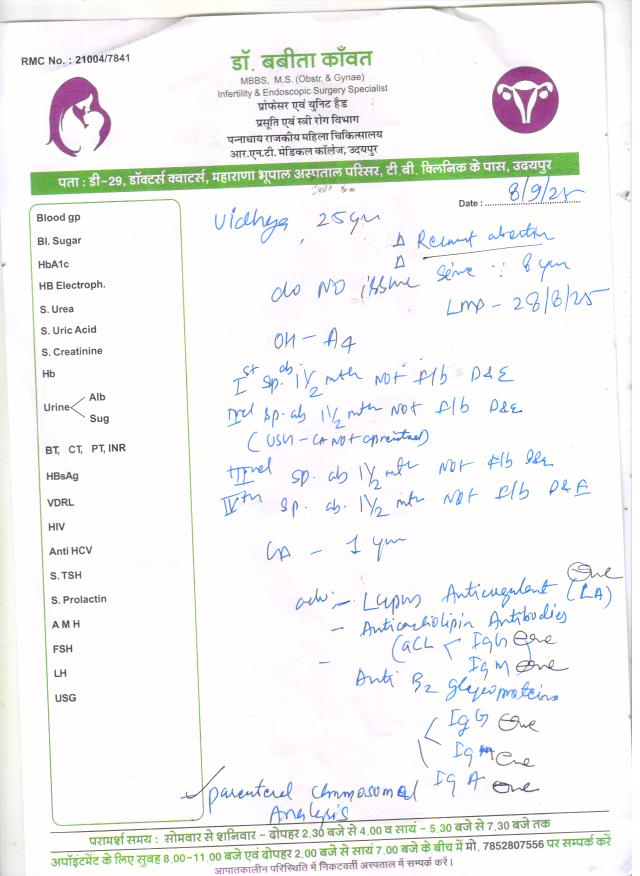 RMC No. : 21004/7841
डॉ. बबीता काँवत
MBBS, M.S. (Obstr. & Gynae)
Infertility & Endoscopic Surgery Specialist
प्रोफेसर एवं यूनिट हैड
प्रसूति एवं स्त्री रोग विभाग
पन्नाधाय राजकीय महिला चिकित्सालय
आर.एन.टी. मेडिकल कॉलेज, उदयपुर
पता : डी-29, डॉक्टर्स क्वाटर्स, महाराणा भूपाल अस्पताल परिसर, टी.बी. क्लिनिक के पास, उदयपुर
Date : 8/9/25
Blood gp
Bl. Sugar
HbA1c
HB Electroph.
S. Urea
S. Uric Acid
S. Creatinine
Hb
Urine Alb
Sug
BT, CT, PT, INR
HBsAg
VDRL
HIV
Anti HCV
S. TSH
S. Prolactin
A M H
FSH
LH
USG
Vidhya, 25 yr
Δ Recurrent abortion
Δ
c/o NO issue since :: 8 yr
LMP - 28/8/25
OH - A4
Ist sp. ab 1 1/2 mth NOT f/b D&E
IInd sp. ab 1 1/2 mth NOT f/b D&E
(USG - CA NOT appreciated)
IIIrd sp. ab 1 1/2 mth NOT f/b D&E
IVth sp. ab. 1 1/2 mth NOT f/b D&E
LA - 1 year
adv :- Lupus Anticoagulant (LA) -ve
- Anticardiolipin Antibodies
(aCL IgG -ve
IgM -ve
- Anti B2 glycoproteins
IgG -ve
IgM -ve
IgA -ve
parenteral chromosomal
Analysis
परामर्श समय : सोमवार से शनिवार - दोपहर 2.30 बजे से 4.00 व सायं - 5.30 बजे से 7.30 बजे तक
अपॉइंटमेंट के लिए सुबह 8.00-11.00 बजे एवं दोपहर 2.00 बजे से सायं 7.00 बजे के बीच में मो. 7852807556 पर सम्पर्क करें
आपातकालीन परिस्थिति में निकटवर्ती अस्पताल में सम्पर्क करें।